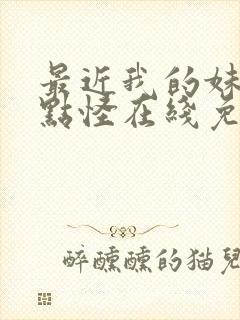 最近我的妹
點怪在綫免
醉醺醺的猫兒